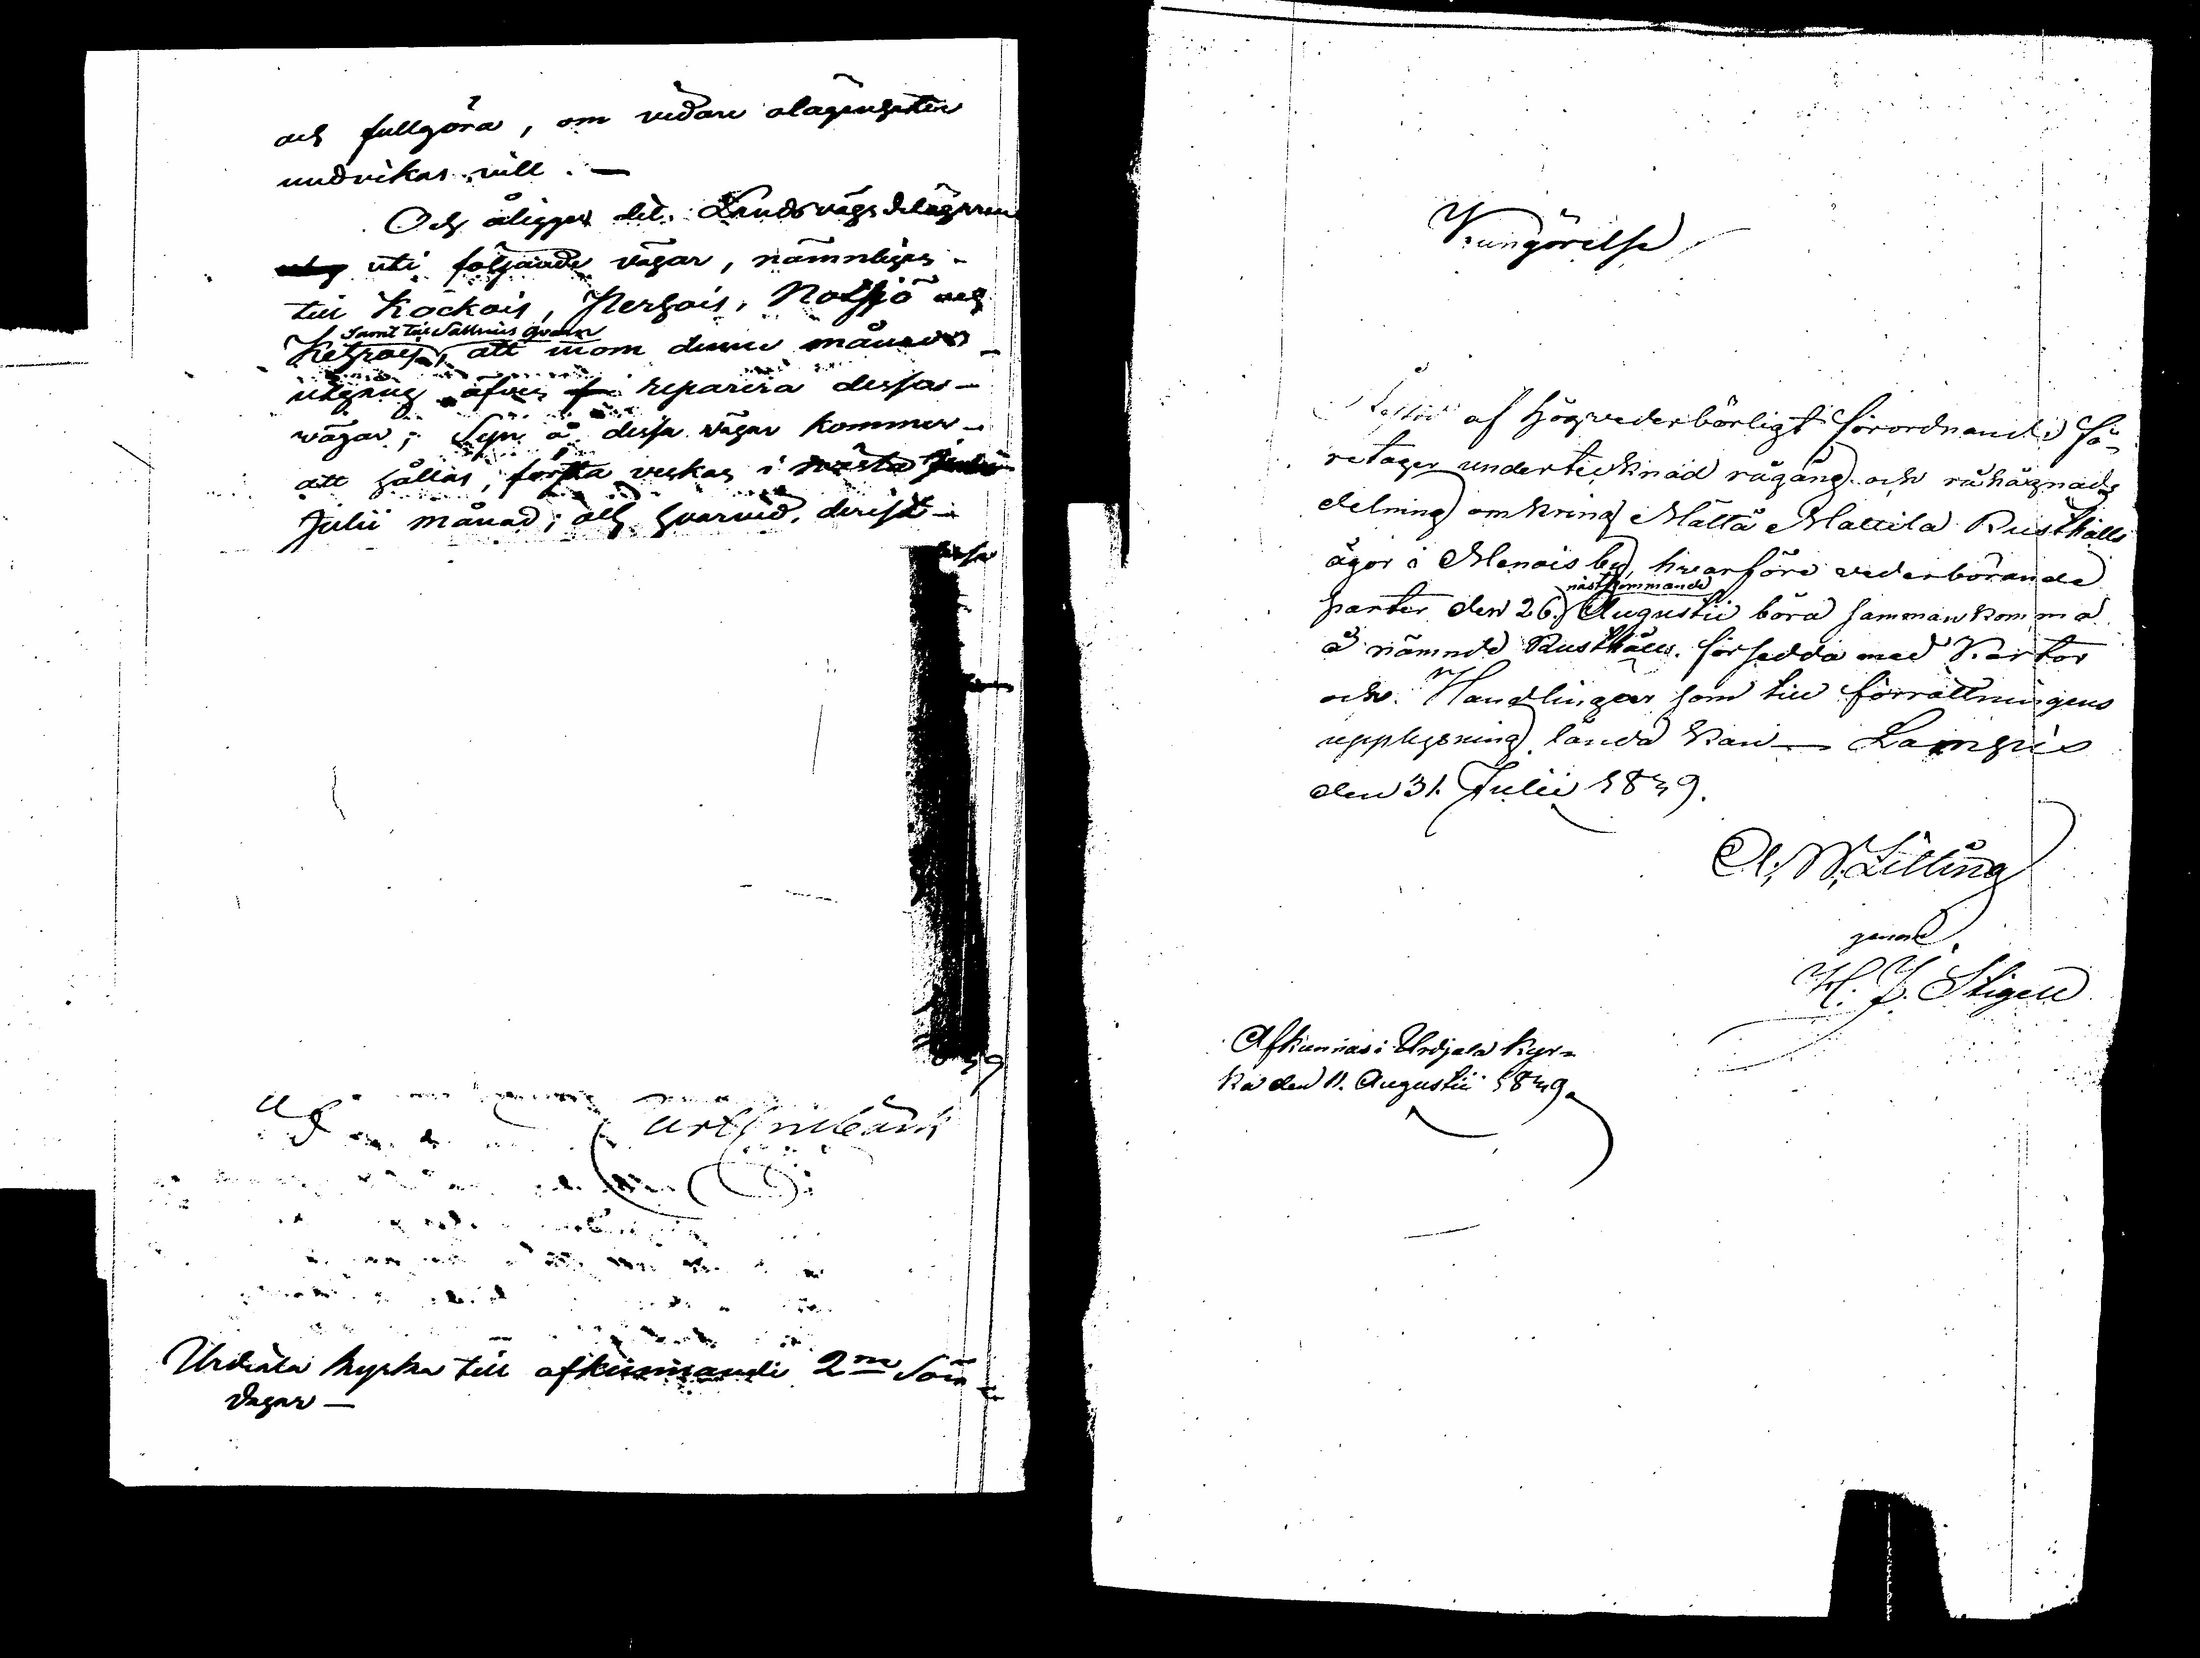 och fullgöra, om vidare olägenheter
undvikas vill. —
Och åligger det Landsvägsdelägarne
uti följande vägar, nämnligen
till Kockois, Nerhois, Notsjö och
samt till Salmis qvarn
att inom denna månads
utgång äfven reparera dessa
vägar; Syn å dessa vägar kommer
att hållas, första veckan i nästa
Julii månad; och hvarvid,
39
Urdiala kyrka till afkunnande 2ne Sön-
dagar —
Kungörelse
af högvederbörligt förordnande fö-
retager undertecknad rågång och råhägnads
delning omkring Mattä Mattila Rusthålls
ägor i Menois by, hvarföre vederbörande
nästkommande
parter den 26 Augustii böra sammankomma
å nämnde Rusthåll försedda med Kartor
och Handlingar som till förrättningens
upplysning lända kan — Lampis
den 31. Julii 1839.
A. W. Lilling
genom
H. J. Stigell
Afkunnas i Urdjala Kyr-
ka den 11. Augustii 1839.